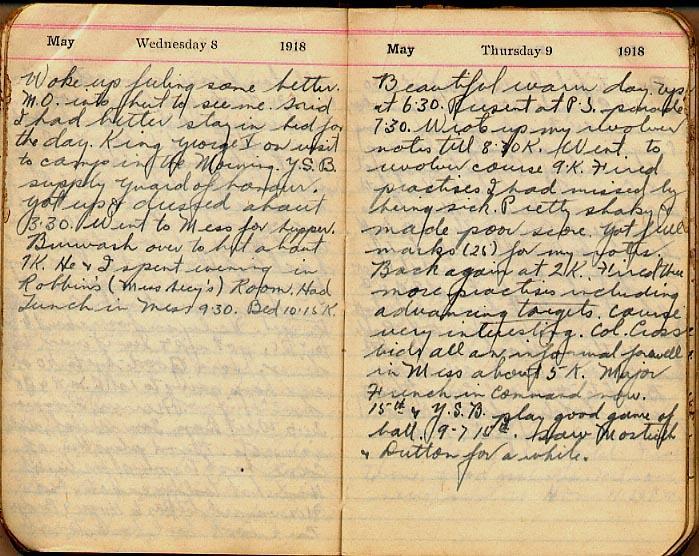 May Wednesday 8 1918
Woke up feeling some better.
M.O. into hut to see me. Said
I had better stay in bed for
the day. King George V on visit
to camp in the Morning. Y.S.B.
supply guard of honour.
Got up & dressed about
3.30. Went to Mess for supper.
Burwash over to hut about
7K. He & I spent evening in
Robbins (Mess Secy's) Room. Had
Lunch in Mess 9.30. Bed 10.15 K.
May Thursday 9 1918
Beautiful warm day. Up
at 6.30. Present at P.S. parade
7.30. Wrote up my revolver
notes till 8.30K. Went to
revolver course 9K. Fired
practises I had missed by
being sick. Pretty shaky &
made poor score. Got full
marks (25) for my notes.
Back again at 2K. Fired three
more practises including
advancing targets. Course
very interesting. Col. Cross
bids all an informal farewell
in Mess about 5K. Major
French in Command now.
15th & Y.S.B. play good game of
ball. 9-7 15th. Saw
& Dutton for a while.